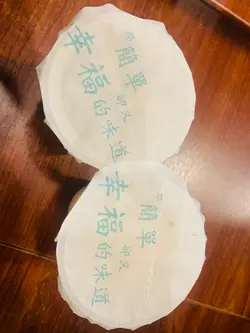 簡單
卻又
幸福的味道
簡單
卻又
幸福的味道